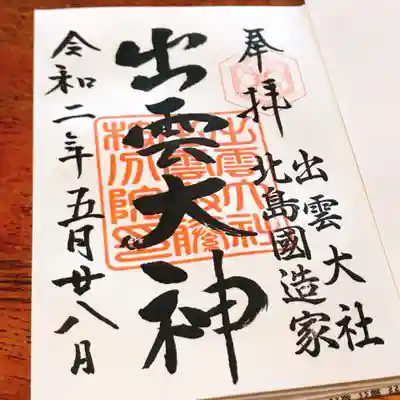 奉拝
出雲大社
北島國造家
出雲大神
令和二年五月廿八月